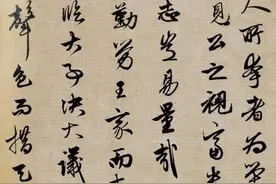 人所夸者為榮
見公之視富貴
志豈易量哉
勤勞王家而
臨大事決大議
聲色而措天